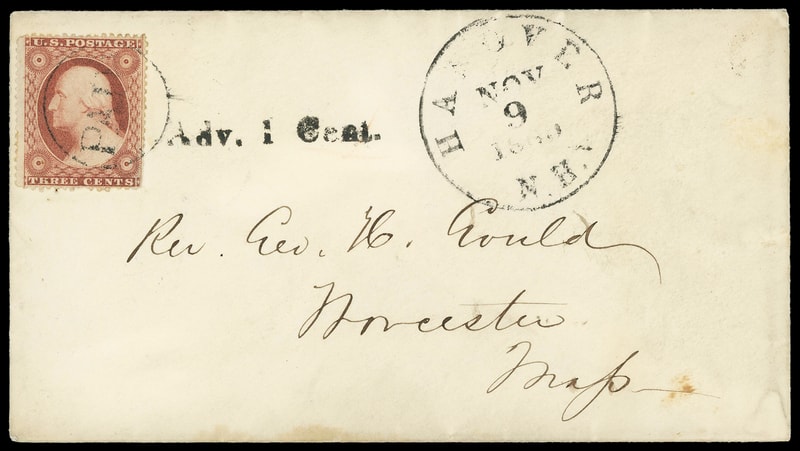 U.S. POSTAGE
PAI
THREE CENTS
Adv. 1 Cent.
HANOVER
NOV
9
N.H.
Rev. Geo. H. Gould
Worcester
Mass